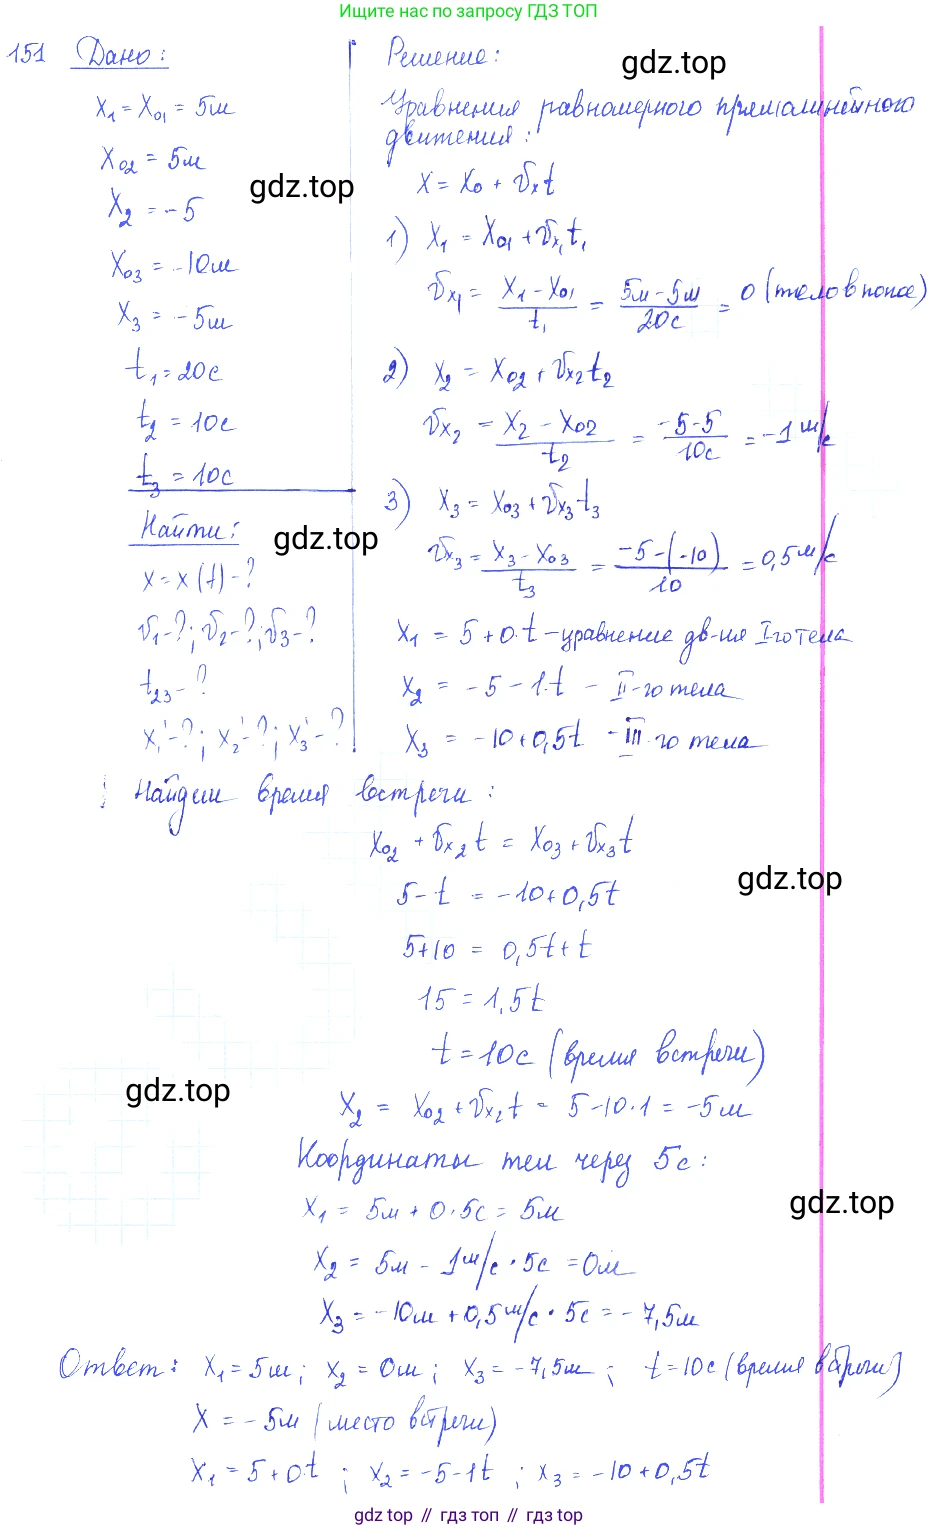 Ищите нас по запросу ГДЗ ТОП
151 Дано:
x₁ = x₀₁ = 5м
x₀₂ = 5м
x₂ = -5
x₀₃ = -10м
x₃ = -5м
t₁ = 20с
t₂ = 10с
t₃ = 10с
Найти:
x = x(t) - ?
v₁ - ?; v₂ - ?; v₃ - ?
t₂₃ - ?
x₁' - ?; x₂' - ?; x₃' - ?
Решение:
gdz.top
Уравнения равномерного прямолинейного
движения:
gdz.top
x = x₀ + vₓt
1) x₁ = x₀₁ + vₓ₁t₁
vₓ₁ = (x₁ - x₀₁)/t₁ = (5м - 5м)/20с = 0 (тело в покое)
2) x₂ = x₀₂ + vₓ₂t₂
vₓ₂ = (x₂ - x₀₂)/t₂ = (-5-5)/10с = -1 м/с
3) x₃ = x₀₃ + vₓ₃t₃
gdz.top
vₓ₃ = (x₃ - x₀₃)/t₃ = (-5-(-10))/10 = 0,5 м/с
x₁ = 5 + 0·t - уравнение дв-ия I го тела
x₂ = -5 - 1·t - II-го тела
x₃ = -10 + 0,5t - III го тела
Найдем время встречи:
x₀₂ + vₓ₂t = x₀₃ + vₓ₃t
gdz.top
5 - t = -10 + 0,5t
5 + 10 = 0,5t + t
15 = 1,5t
t = 10с (время встречи)
gdz.top
x₂ = x₀₂ + vₓ₂t = 5 - 10·1 = -5м
Координаты тел через 5с:
gdz.top
x₁ = 5м + 0·5с = 5м
x₂ = 5м - 1м/с · 5с = 0м
x₃ = -10м + 0,5м/с · 5с = -7,5м
Ответ: x₁ = 5м; x₂ = 0м; x₃ = -7,5м; t = 10с (время встречи)
x = -5м (место встречи)
x₁ = 5 + 0·t; x₂ = -5 - 1t; x₃ = -10 + 0,5t
gdz.top // гдз топ // гдз.топ